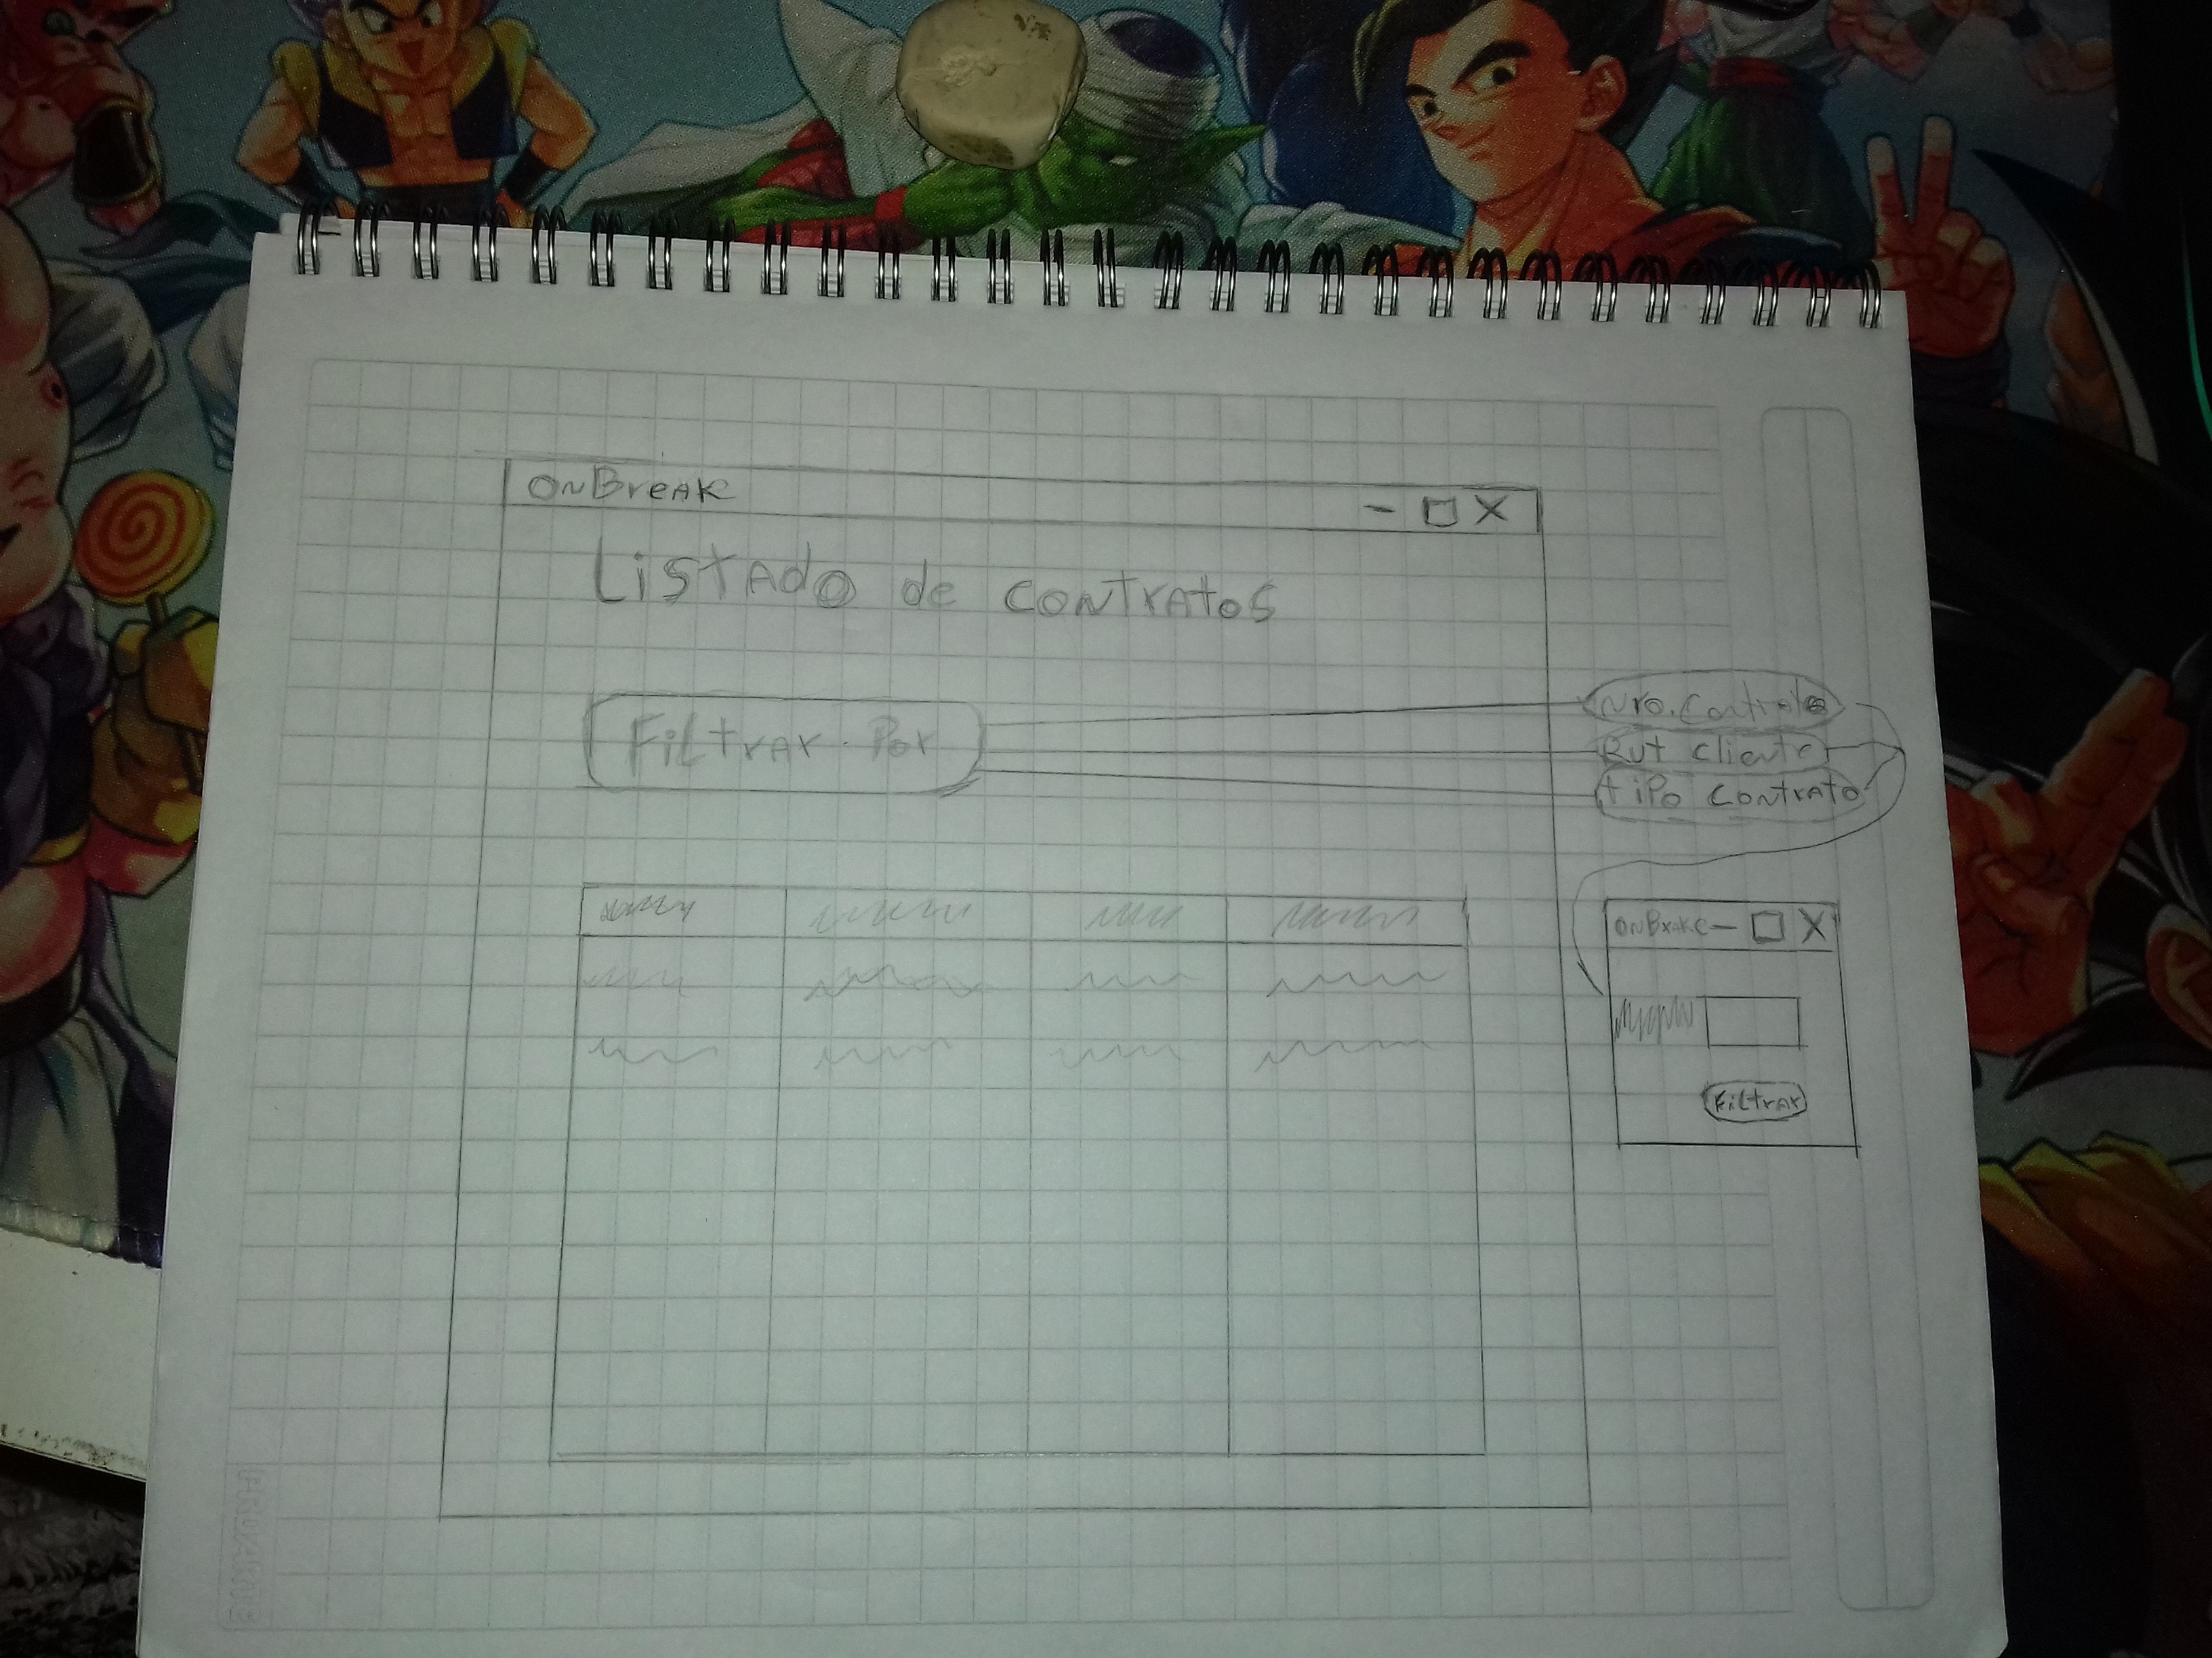 OnBreak
Listado de contratos
Filtrar Por
Nro. Contrato
Rut Cliente
tipo contrato
OnBrake
Filtrar